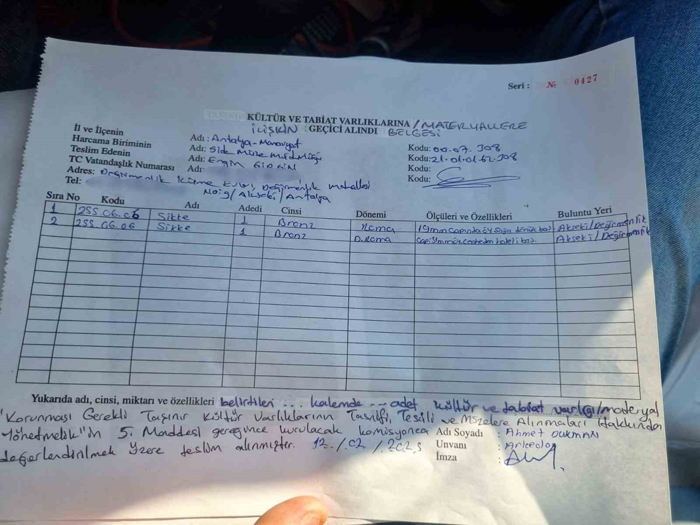 Seri : № 0427
KÜLTÜR VE TABİAT VARLIKLARINA / MATERYALLERE
İLİŞKİN GEÇİCİ ALINDI BELGESİ
İl ve İlçenin Adı : Antalya-Manavgat Kodu: 00.07. 308
Harcama Biriminin Adı: Side Müze Müdürlüğü Kodu: 21.01.01.62.308
Teslim Edenin Adı: Engin Kodu:
TC Vatandaşlık Numarası Adı: Kodu:
Adres: Değirmenlik Kuzey Değirmenlik mahallesi
Tel: No:9/Akseki/Antalya
Sıra No Kodu Adı Adedi Cinsi Dönemi Ölçüleri ve Özellikleri Buluntu Yeri
1 255.06.06 Sikke 1 Bronz Roma 19mm çapında Akseki/Değirmenlik
2 255.06.06 Sikke 1 Bronz D.Roma Akseki/Değirmenlik
Yukarıda adı, cinsi, miktarı ve özellikleri belirtilen ... kalemde ... adet kültür ve tabiat varlığı/materyal
"Korunması Gerekli Taşınır Kültür Varlıklarının Tasnifi, Tescili ve Müzelere Alınmaları Hakkında
Yönetmelik"in 5. Maddesi gereğince kurulacak komisyonca Adı Soyadı : Ahmet
değerlendirilmek üzere teslim alınmıştır. 12./.02./2025 Unvanı : Arkeolog
İmza :